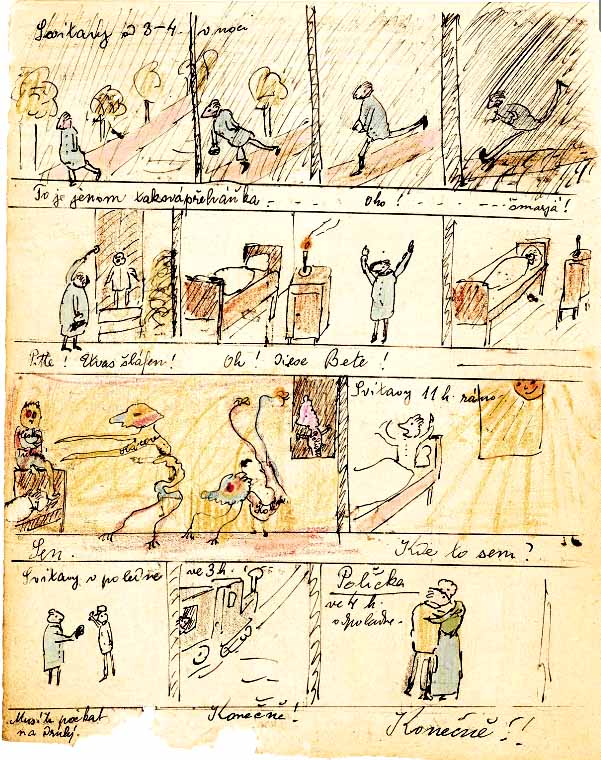 Svitavy od 3–4. v noci
To je jenom taková přeháňka – . - - - Oho! - - - - - - šmarjá!
Bitte! Etwas šláfen! Oh! Diese Bete!
Sen.
Svitavy 11 h. ráno
Kde to sem?
Svitavy v poledne
Musíte počkat
na druhý.
ve 3 h.
Konečně!
Polička
ve 4 h.
odpoledne.
Konečně!!